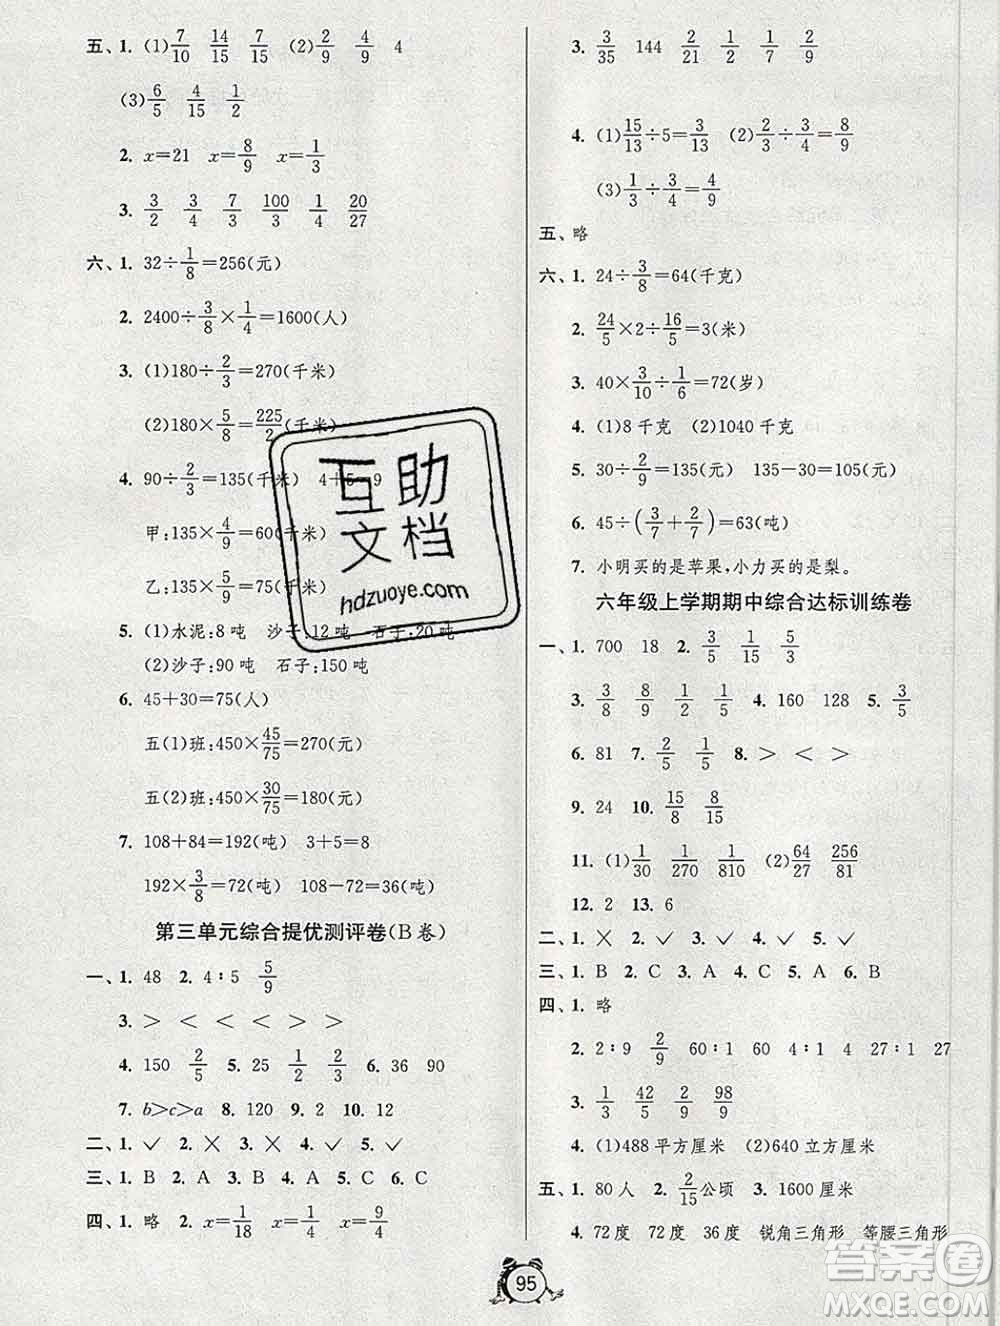 五、1. (1)7/10 14/15 7/15 (2)2/9 2/9 4
(3)6/5 4/15 1/2
2. x=21 x=8/9 x=1/3
3. 3/2 3/4 7/3 100/3 1/4 20/27
六、1. 32÷1/8=256(元)
2. 2400÷3/8×1/4=1600(人)
3. (1)180÷2/3=270(千米)
(2)180×5/8=225/2(千米)
4. 90÷2/3=135(千米) 4+5=9
甲:135×4/9=60(千米)
乙:135×5/9=75(千米)
5. (1)水泥:8吨 沙子:12吨 石子:20吨
(2)沙子:90吨 石子:150吨
6. 45+30=75(人)
五(1)班:450×45/75=270(元)
五(2)班:450×30/75=180(元)
7. 108+84=192(吨) 3+5=8
192×3/8=72(吨) 108-72=36(吨)
第三单元综合提优测评卷(B卷)
一、1. 48 2. 4∶5 5/9
3. > < < < > >
4. 150 2/5 5. 25 1/2 2/3 6. 36 90
7. b>c>a 8. 120 9. 2 10. 12
二、1. ✓ 2. ✕ 3. ✕ 4. ✓ 5. ✓
三、1. B 2. A 3. B 4. A 5. C 6. C
四、1. 略 2. x=1/18 x=3/10 x=9/4
3. 3/35 144 2/21 1/2 1/7 2/9
4. (1)15/13÷5=3/13 (2)2/3÷3/4=8/9
(3)1/3÷3/4=4/9
五、略
六、1. 24÷3/8=64(千克)
2. 24/5×2÷16/5=3(米)
3. 40×3/10÷1/6=72(岁)
4. (1)8千克 (2)1040千克
5. 30÷2/9=135(元) 135-30=105(元)
6. 45÷(3/7+2/7)=63(吨)
7. 小明买的是苹果,小力买的是梨。
六年级上学期期中综合达标训练卷
一、1. 700 18 2. 3/5 1/15 5/3
3. 3/8 8/9 1/2 2/5 4. 160 128 5. 3/5
6. 81 7. 2/5 1/5 8. > < >
9. 24 10. 15/8 8/15
11. (1)1/30 1/270 1/810 (2)64/27 256/81
12. 2 13. 6
二、1. ✕ 2. ✓ 3. ✓ 4. ✓ 5. ✓
三、1. B 2. C 3. A 4. C 5. A 6. B
四、1. 略
2. 2∶9 2/9 60∶1 60 4∶1 4 27∶1 27
3. 1/3 4/15 2/9 98/9
4. (1)488平方厘米 (2)640立方厘米
五、1. 80人 2. 2/15公顷 3. 1600厘米
4. 72度 72度 36度 锐角三角形 等腰三角形
95
互助
文档
hdzuoye.com
答案卷
MXQE.COM